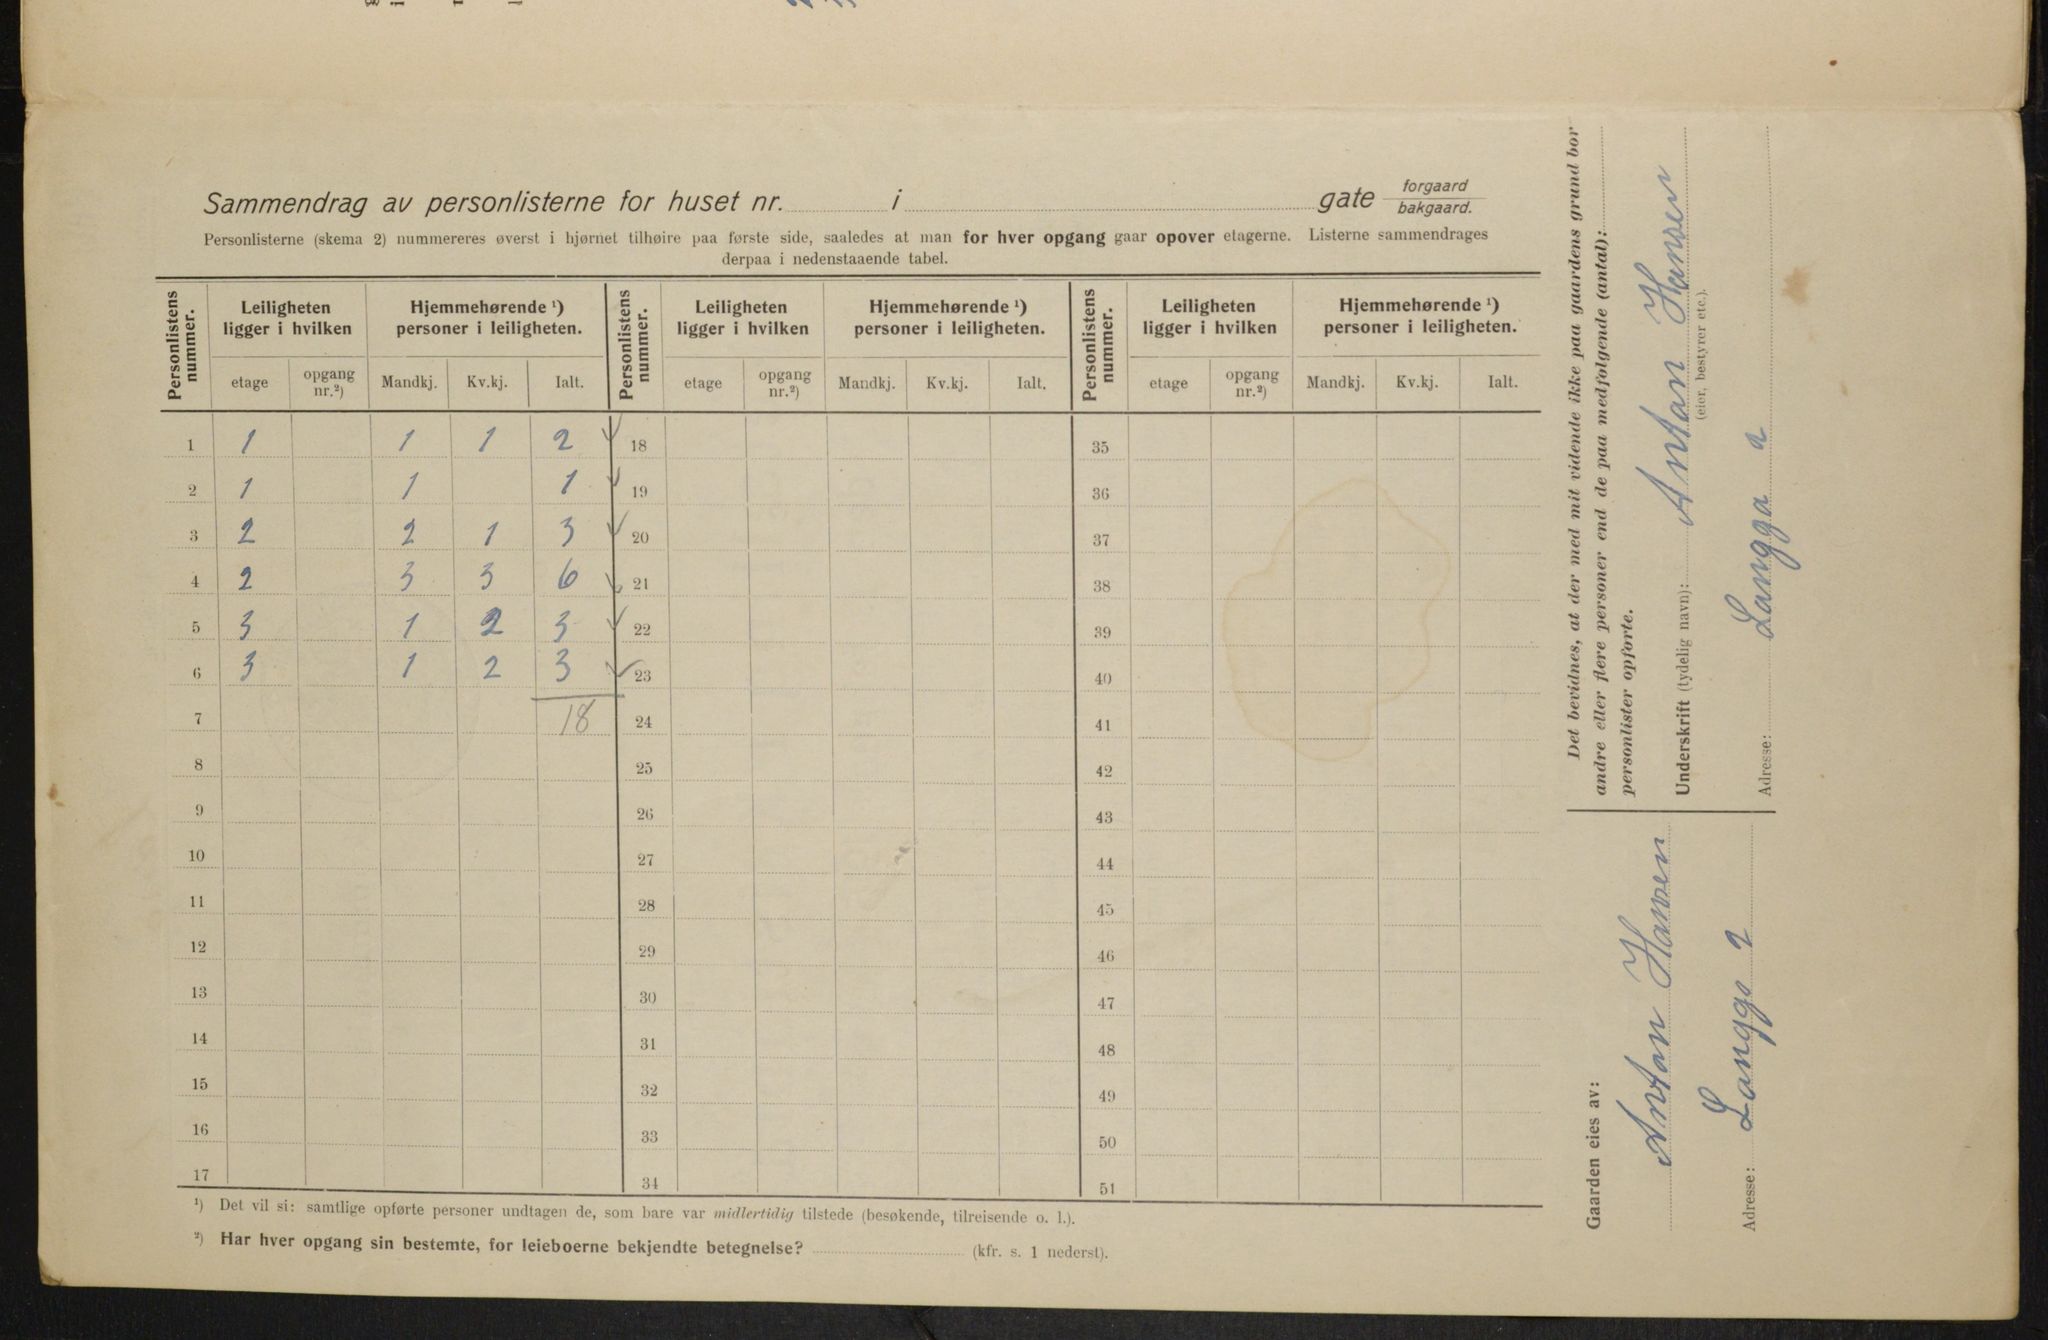 Sammendrag av personlisterne for huset nr. i gate forgaard
bakgaard.
Personlisterne (skema 2) nummereres øverst i hjørnet tilhøire paa første side, saaledes at man for hver opgang gaar opover etagerne. Listerne sammendrages
derpaa i nedenstaaende tabel.
Personlistens nummer. Leiligheten ligger i hvilken Hjemmehørende ¹) personer i leiligheten. Personlistens nummer. Leiligheten ligger i hvilken Hjemmehørende ¹) personer i leiligheten. Personlistens nummer. Leiligheten ligger i hvilken Hjemmehørende ¹) personer i leiligheten.
etage opgang nr.²) Mandkj. Kv.kj. Ialt. etage opgang nr.²) Mandkj. Kv.kj. Ialt. etage opgang nr.²) Mandkj. Kv.kj. Ialt.
1 1 1 1 2 18 35
2 1 1 1 19 36
3 2 2 1 3 20 37
4 2 3 3 6 21 38
5 3 1 2 3 22 39
6 3 1 2 3 23 40
7 18 24 41
8 25 42
9 26 43
10 27 44
11 28 45
12 29 46
13 30 47
14 31 48
15 32 49
16 33 50
17 34 51
¹) Det vil si: samtlige opførte personer undtagen de, som bare var midlertidig tilstede (besøkende, tilreisende o. l.).
²) Har hver opgang sin bestemte, for leieboerne bekjendte betegnelse? (kfr. s. 1 nederst).
Det bevidnes, at der med mit vidende ikke paa gaardens grund bor
andre eller flere personer end de paa medfølgende (antal):
personlister opførte.
Underskrift (tydelig navn): Anton Hansen
(eier, bestyrer etc.).
Adresse: Langga 2
Gaarden eies av:
Anton Hansen
Adresse: Langga 2